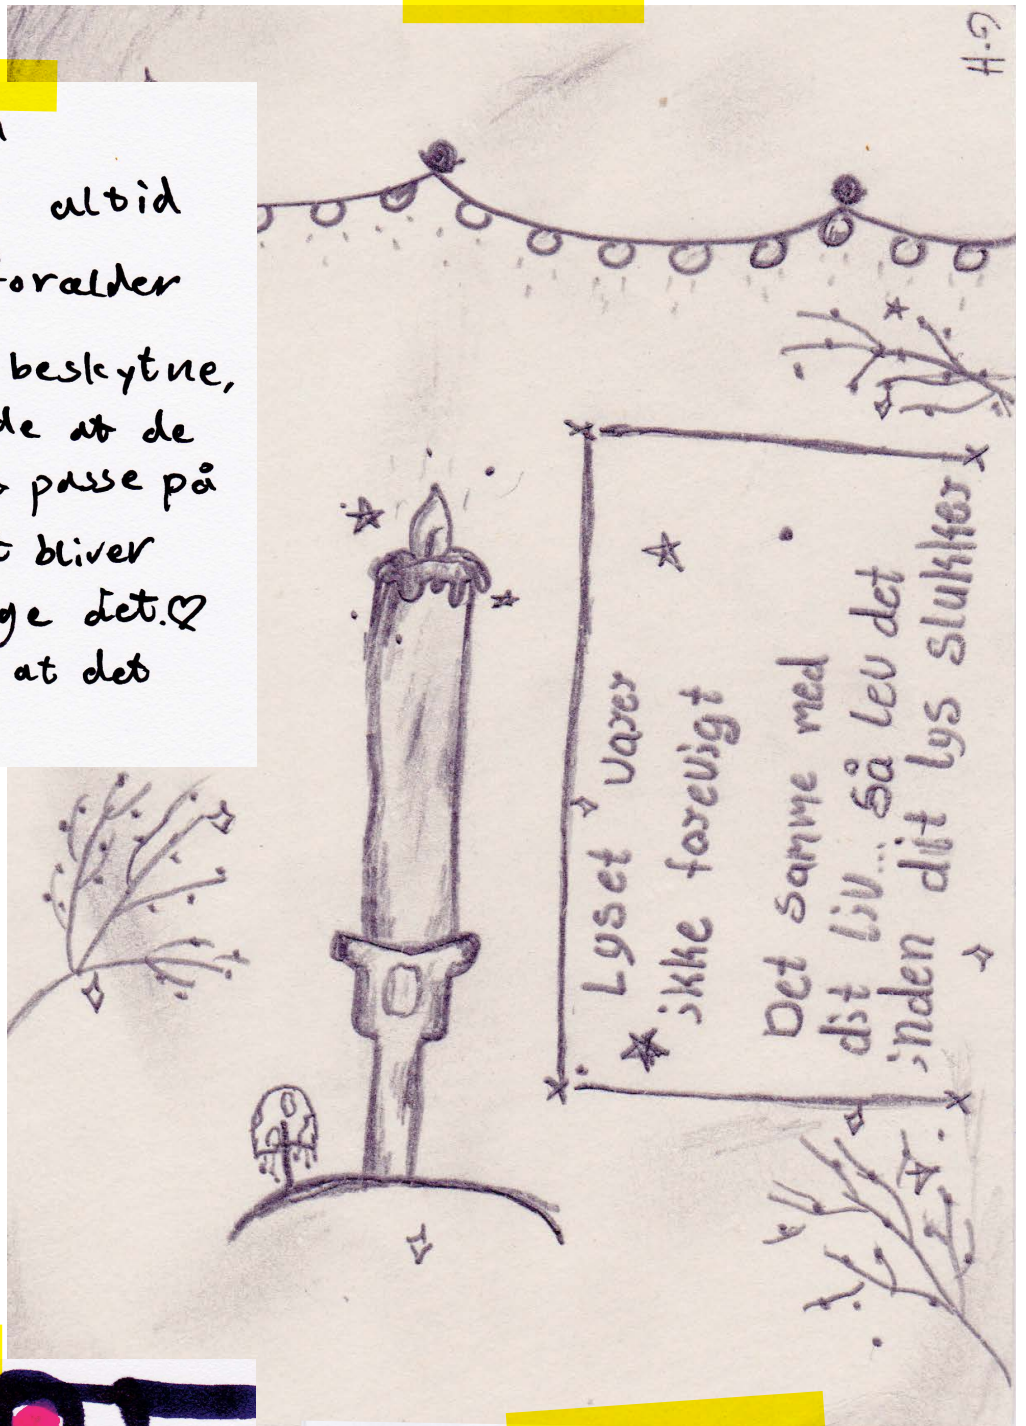 altid
forælder
beskytne,
de at de
passe på
bliver
ge det.♡
at det
Lyset varer
ikke forevigt
Det samme med
dit liv... så lev det
inden dit lys slukker
H.G